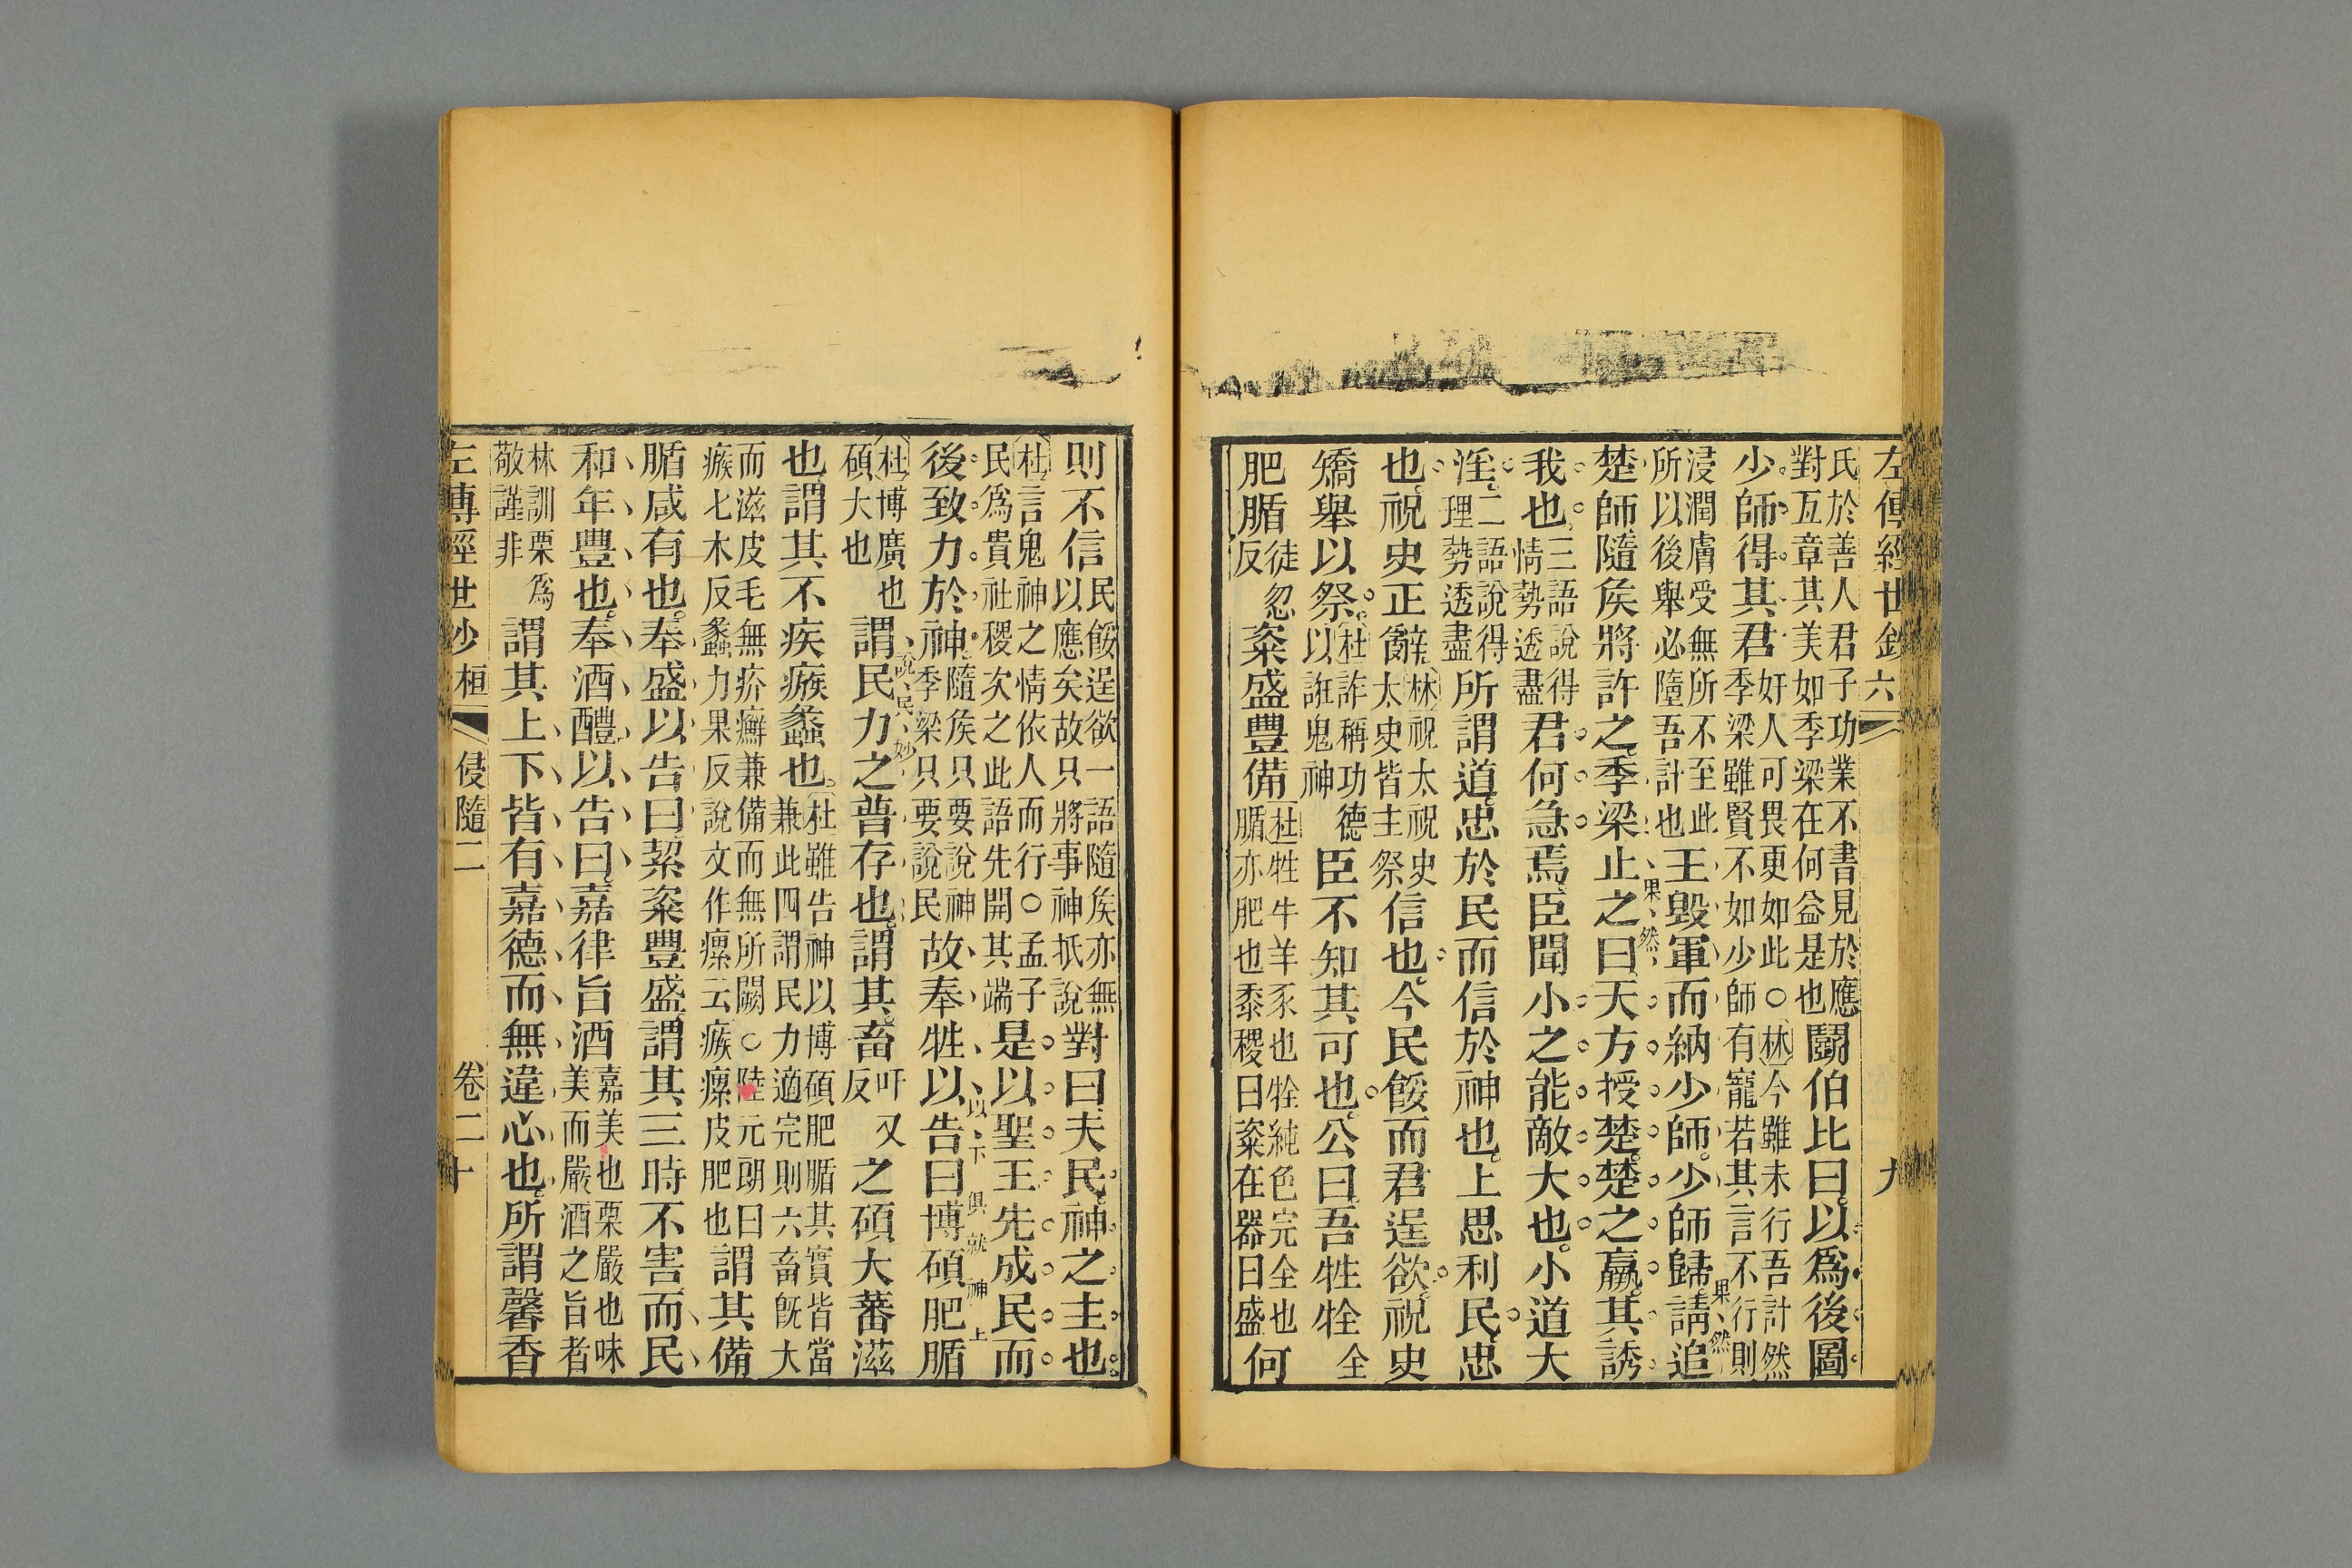 左傳經世鈔 六 九
氏於善人君子功業不書見於應
對亙章其美如季梁在何益是也
鬭伯比曰以爲後圖
少師得其君
奸人可畏更如此○林今雖未行吾計然
季梁雖賢不如少師有寵若其言不行則
浸潤膚受無所不至此
所以後舉必隨吾計也
王毀軍而納少師少師歸請追
果然
果然
楚師隨矦將許之季梁止之曰天方授楚楚之羸其誘
我也
三語說得
情勢透盡
君何急焉臣聞小之能敵大也小道大
淫
二語說得
理勢透盡
所謂道忠於民而信於神也上思利民忠
也祝史正辭
林祝太祝史
太史皆主祭
信也今民餒而君逞欲祝史
矯舉以祭
杜詐稱功德
以誑鬼神
臣不知其可也公曰吾牲牷
全
肥腯
徒忽
反
粢盛豐備
杜牲牛羊豕也牷純色完全也
腯亦肥也黍稷曰粢在器曰盛
何
則不信
民餒逞欲一語隨矦亦無
以應矣故只將事神抵說
對曰夫民神之主也
杜言鬼神之情依人而行○孟子
民爲貴社稷次之此語先開其端
是以聖王先成民而
以下俱就神上
後致力於神
隨矦只要說神
季梁只要說民
故奉牲以告曰博碩肥腯
說民妙
杜博廣也
碩大也
謂民力之普存也謂其畜
吁又
反
之碩大蕃滋
也謂其不疾瘯蠡也
杜雖告神以博碩肥腯其實皆當
兼此四謂民力適完則六畜旣大
而滋皮毛無疥癬兼備而無所闕○陸元朗曰
瘯七木反蠡力果反說文作瘰云瘯瘰皮肥也
謂其備
腯咸有也奉盛以告曰絜粢豐盛謂其三時不害而民
和年豐也奉酒醴以告曰嘉律旨酒
嘉美也栗嚴也味
美而嚴酒之旨者
林訓栗爲
敬謹非
謂其上下皆有嘉德而無違心也所謂馨香
左傳經世鈔 桓 侵隨二 卷二 十